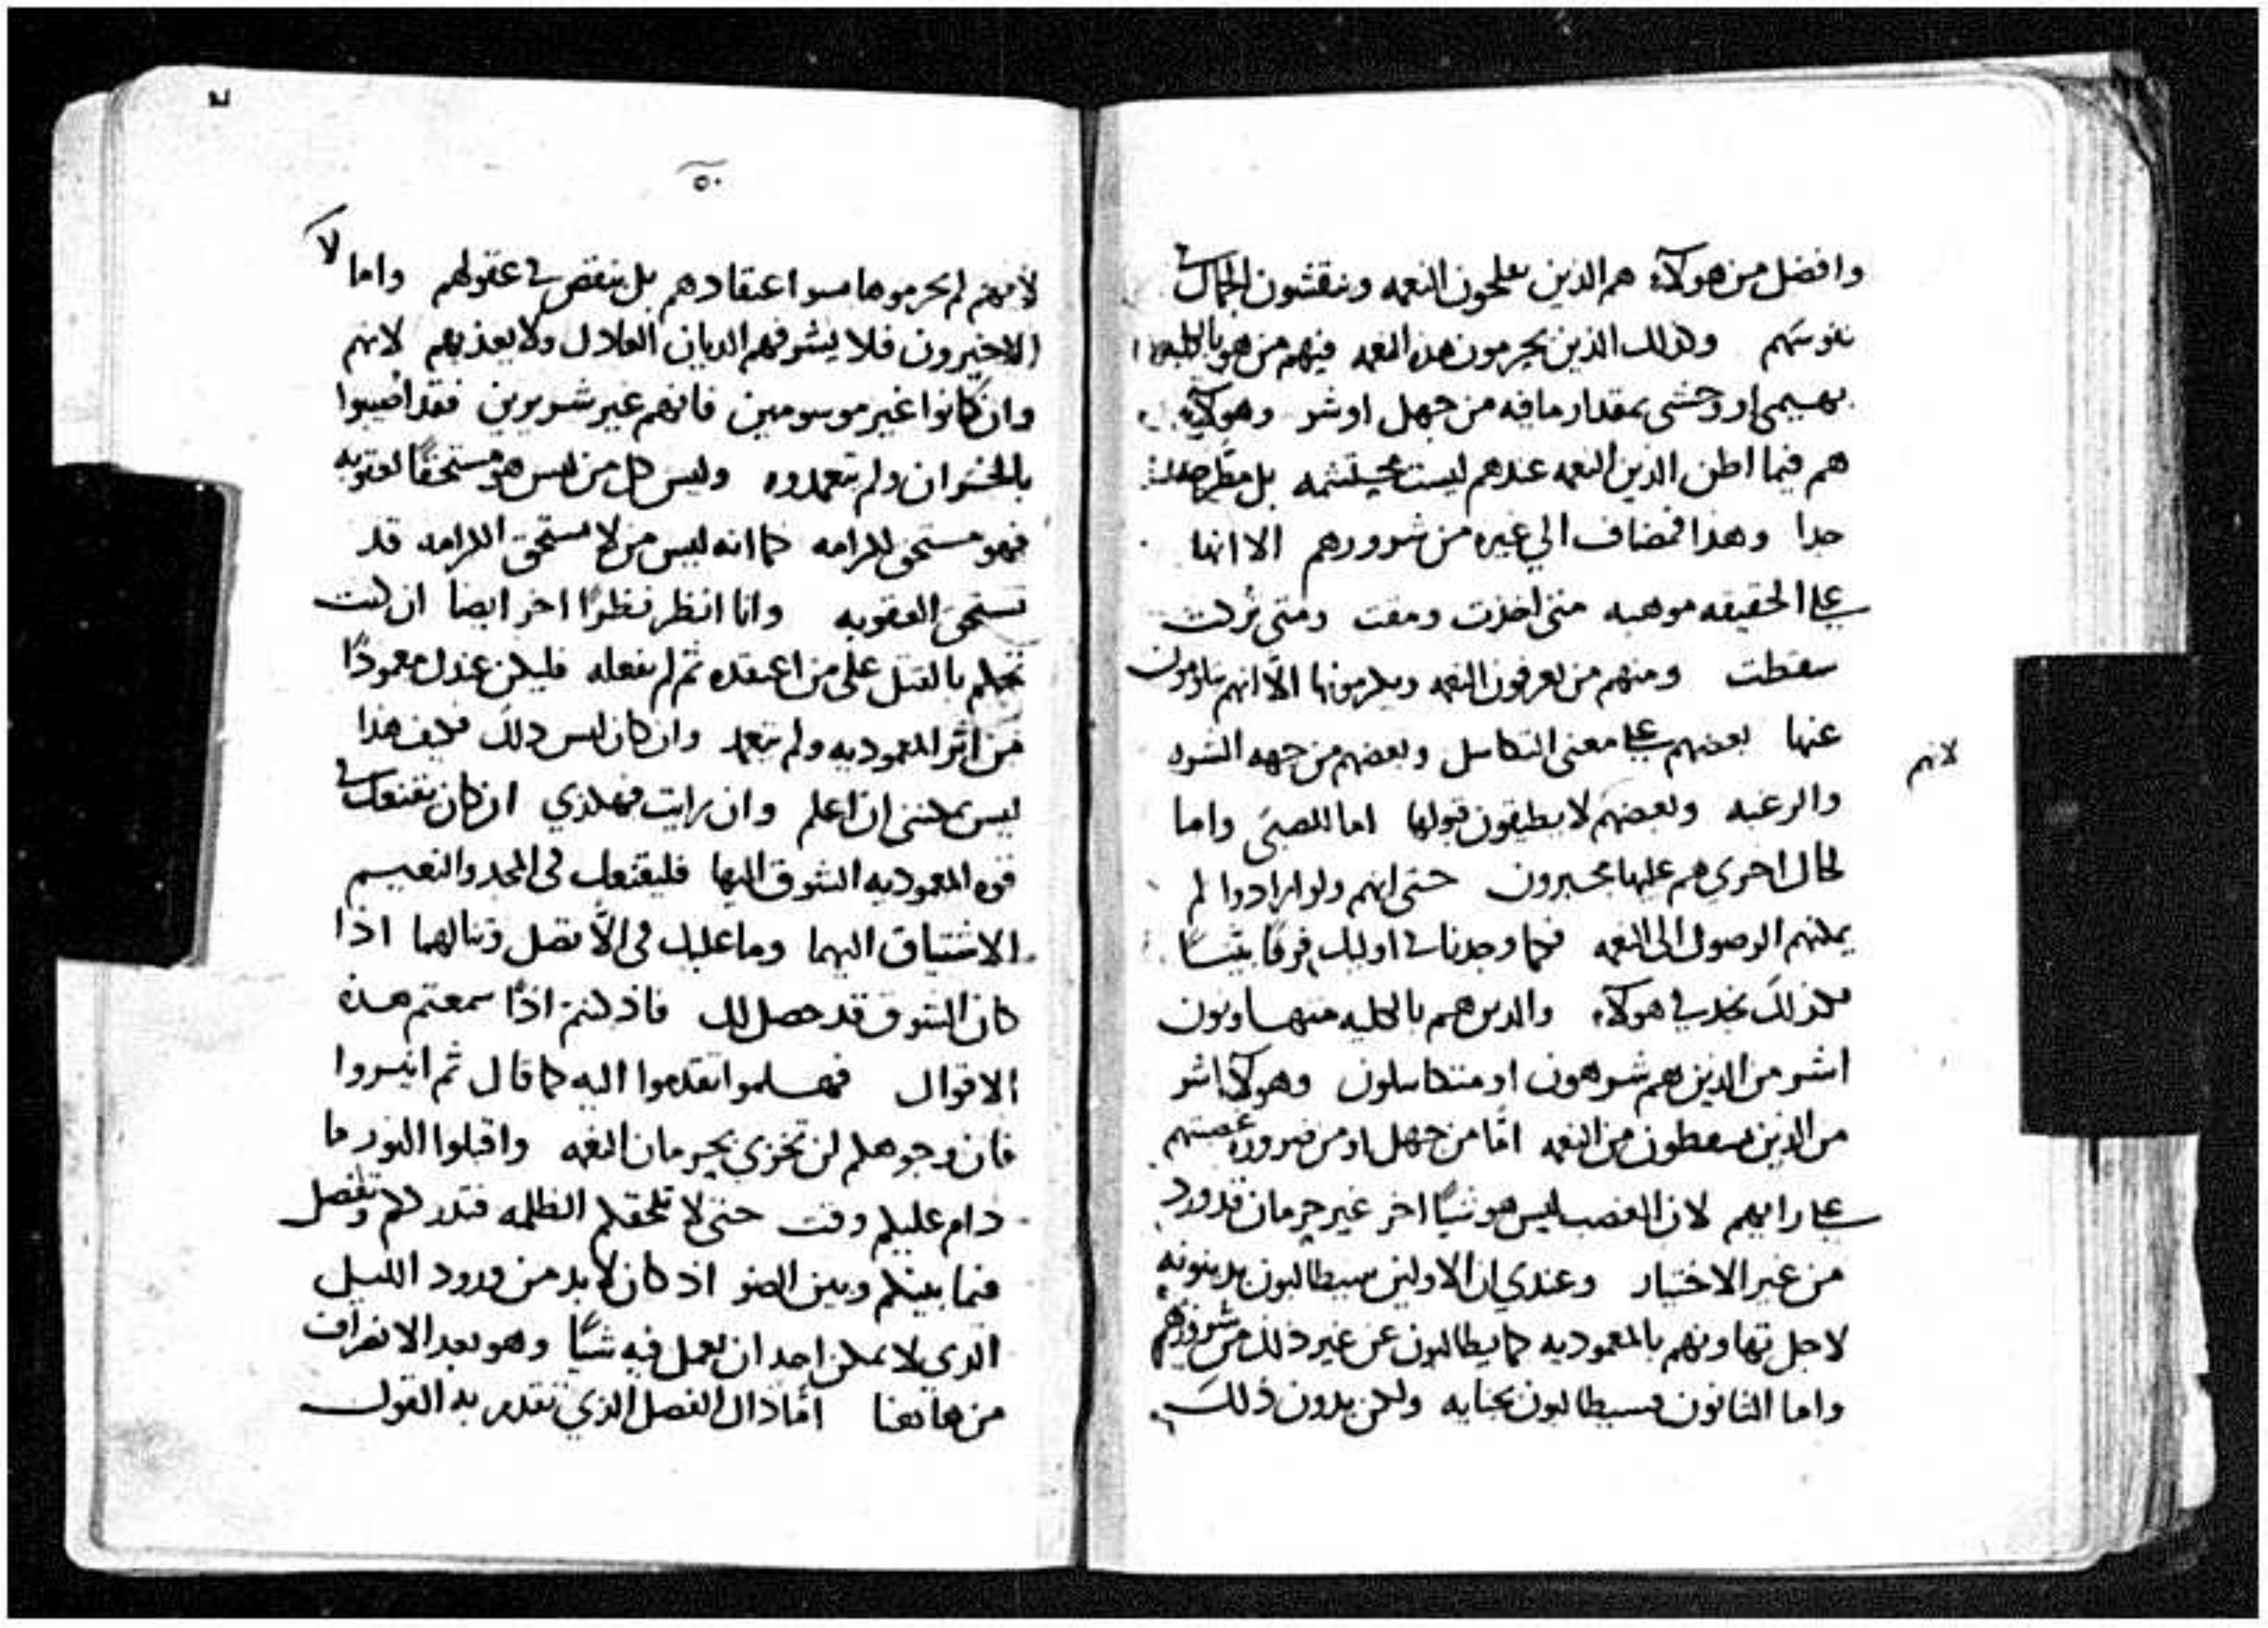 وافضل من هولآء هم الذين يفلحون النعمه وينقشون الجمال في
نفوسهم وكذلك الذين يحرمون هذه النعمه فمنهم من هو بالكليه
بهيمي او وحشي بمقدار ما فيه من جهل او شر وهولآء
هم فيما اظن الذين النعمه عندهم ليست بمحتشمه بل
جدا وهذا فمضاف الي غيره من شرورهم الا انها
علي الحقيقه موهبه متى اخذت ومقت ومتى تركت
سقطت ومنهم من يعرفون النعمه ويكرمونها الّا انهم يتاومون
عنها بعضهم علي معنى التكاسل وبعضهم من جهه الشره
والرغبه وبعضهم لا يطيقون قبولها اما للصبى واما
لحال اخري هم عليها مجبرون حتى انهم ولو ارادوا لم
يمكنهم الوصول الى النعمه فكما وجدنا في اوليك فرقا بينًا
فكذلك نجد في هولآء والذين هم بالكليه متهاونون
اشر من الذين هم شرهون او متكاسلون وهولآء اشر
من الذين يسقطون من النعمه امّا من جهل او من ضروره غصبتهم
علي رايهم لان الغصب ليس هو شيًا اخر غير حرمان قد ورد
من غير الاختيار وعندي ان الاولين سيطالبون بدينونه
لاجل تهاونهم بالمعموديه كما يطالبون عن غير ذلك من شرورهم
واما الثانون فسيطالبون بجنايه ولكن بدون ذلك
لانهم
٥٠
لانهم لم يحرموها بسوا اعتقادهم بل بنقص في عقولهم واما
الاخيرون فلا يشرفهم الديان العادل ولا يعذبهم لانهم
وان كانوا غير موسومين فانهم غير شريرين فقد اصيبوا
بالخسران ولم يتعمدوه وليس كل من ليس هو مستحقًا لعقوبه
فهو مستحق لكرامه كما انه ليس من لا يستحق الكرامه قد
يستحق العقوبه وانا انظر نظرًا اخر ايضا ان كنت
تحكم بالقتل على من اعتقده ثم لم يفعله فليكن عندك معمودًا
من اثر المعموديه ولم يتعمد وان كان ليس ذلك فكيف هذا
ليس يمكنني ان اعلم وان رايت فهكذي ان كان يقنعك في
قوه المعموديه الشوق اليها فليقنعك في المجد والنعيم
الاشتياق اليهما وما عليك في الّا تصل وتنالهما اذا
كان الشوق قد حصل لك فاذ كنتم اذًا سمعتم هذه
الاقوال فهلموا تقدموا اليه كما قال ثم انيروا
فان وجوهكم لن تخزي بحرمان النعمه واقبلوا النور ما
دام عليكم وقت حتى لا تلحقكم الظلمه فتدرككم وتفصل
فيما بينكم وبين الضو اذ كان لا بد من ورود الليل
الذي لا يمكن احد ان يعمل فيه شيًا وهو بعد الانصراف
من هاهنا امّا ذاك الفصل الذي تقدم به القول